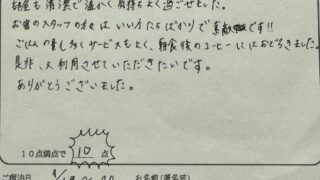 部屋も清潔で温かく気持ちよく過ごせました。
お宿のスタッフの方は いい方たちばかりで 素敵です!!
ごはんの量も多くサービスもよく、朝食後のコーヒーにはおどろきました。
是非、又利用させていただきたいです。
ありがとうございました。
10点満点で 10 点
ご宿泊日
お名前(匿名可)